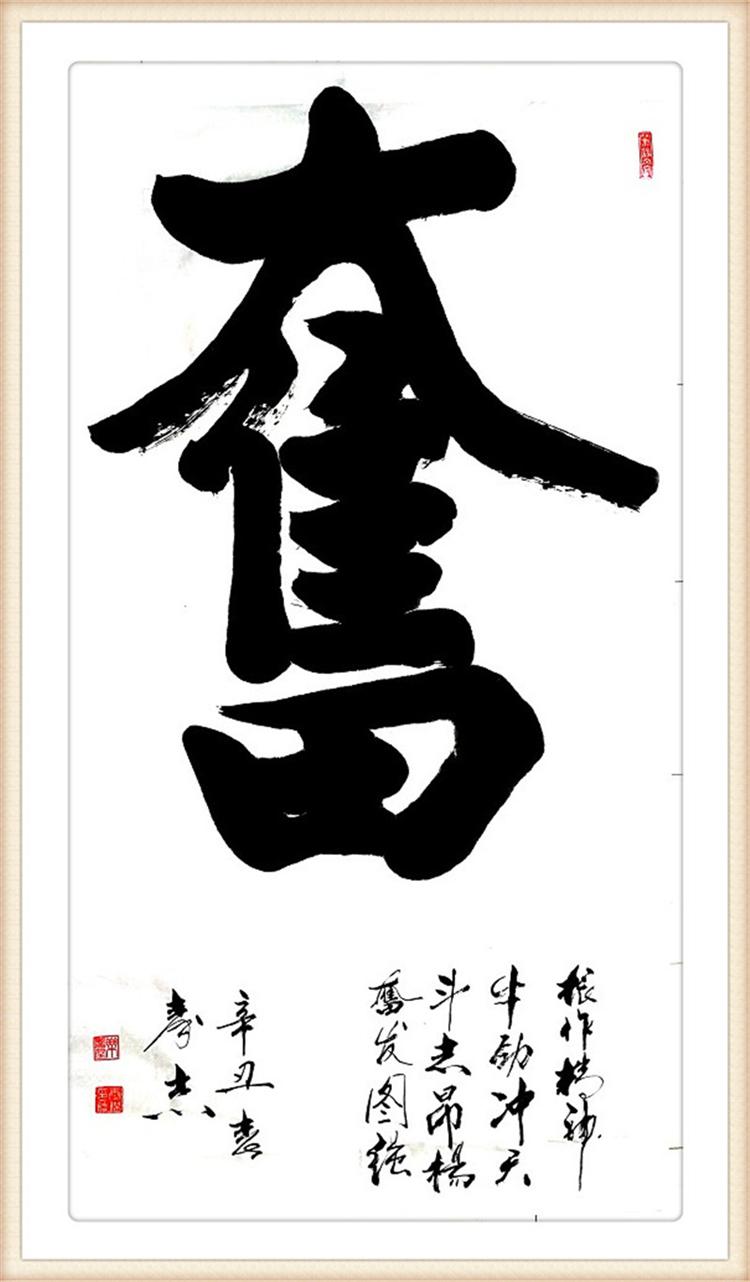 奮
振作精神
牛劲冲天
斗志昂楊
奮发图强
辛丑春
志